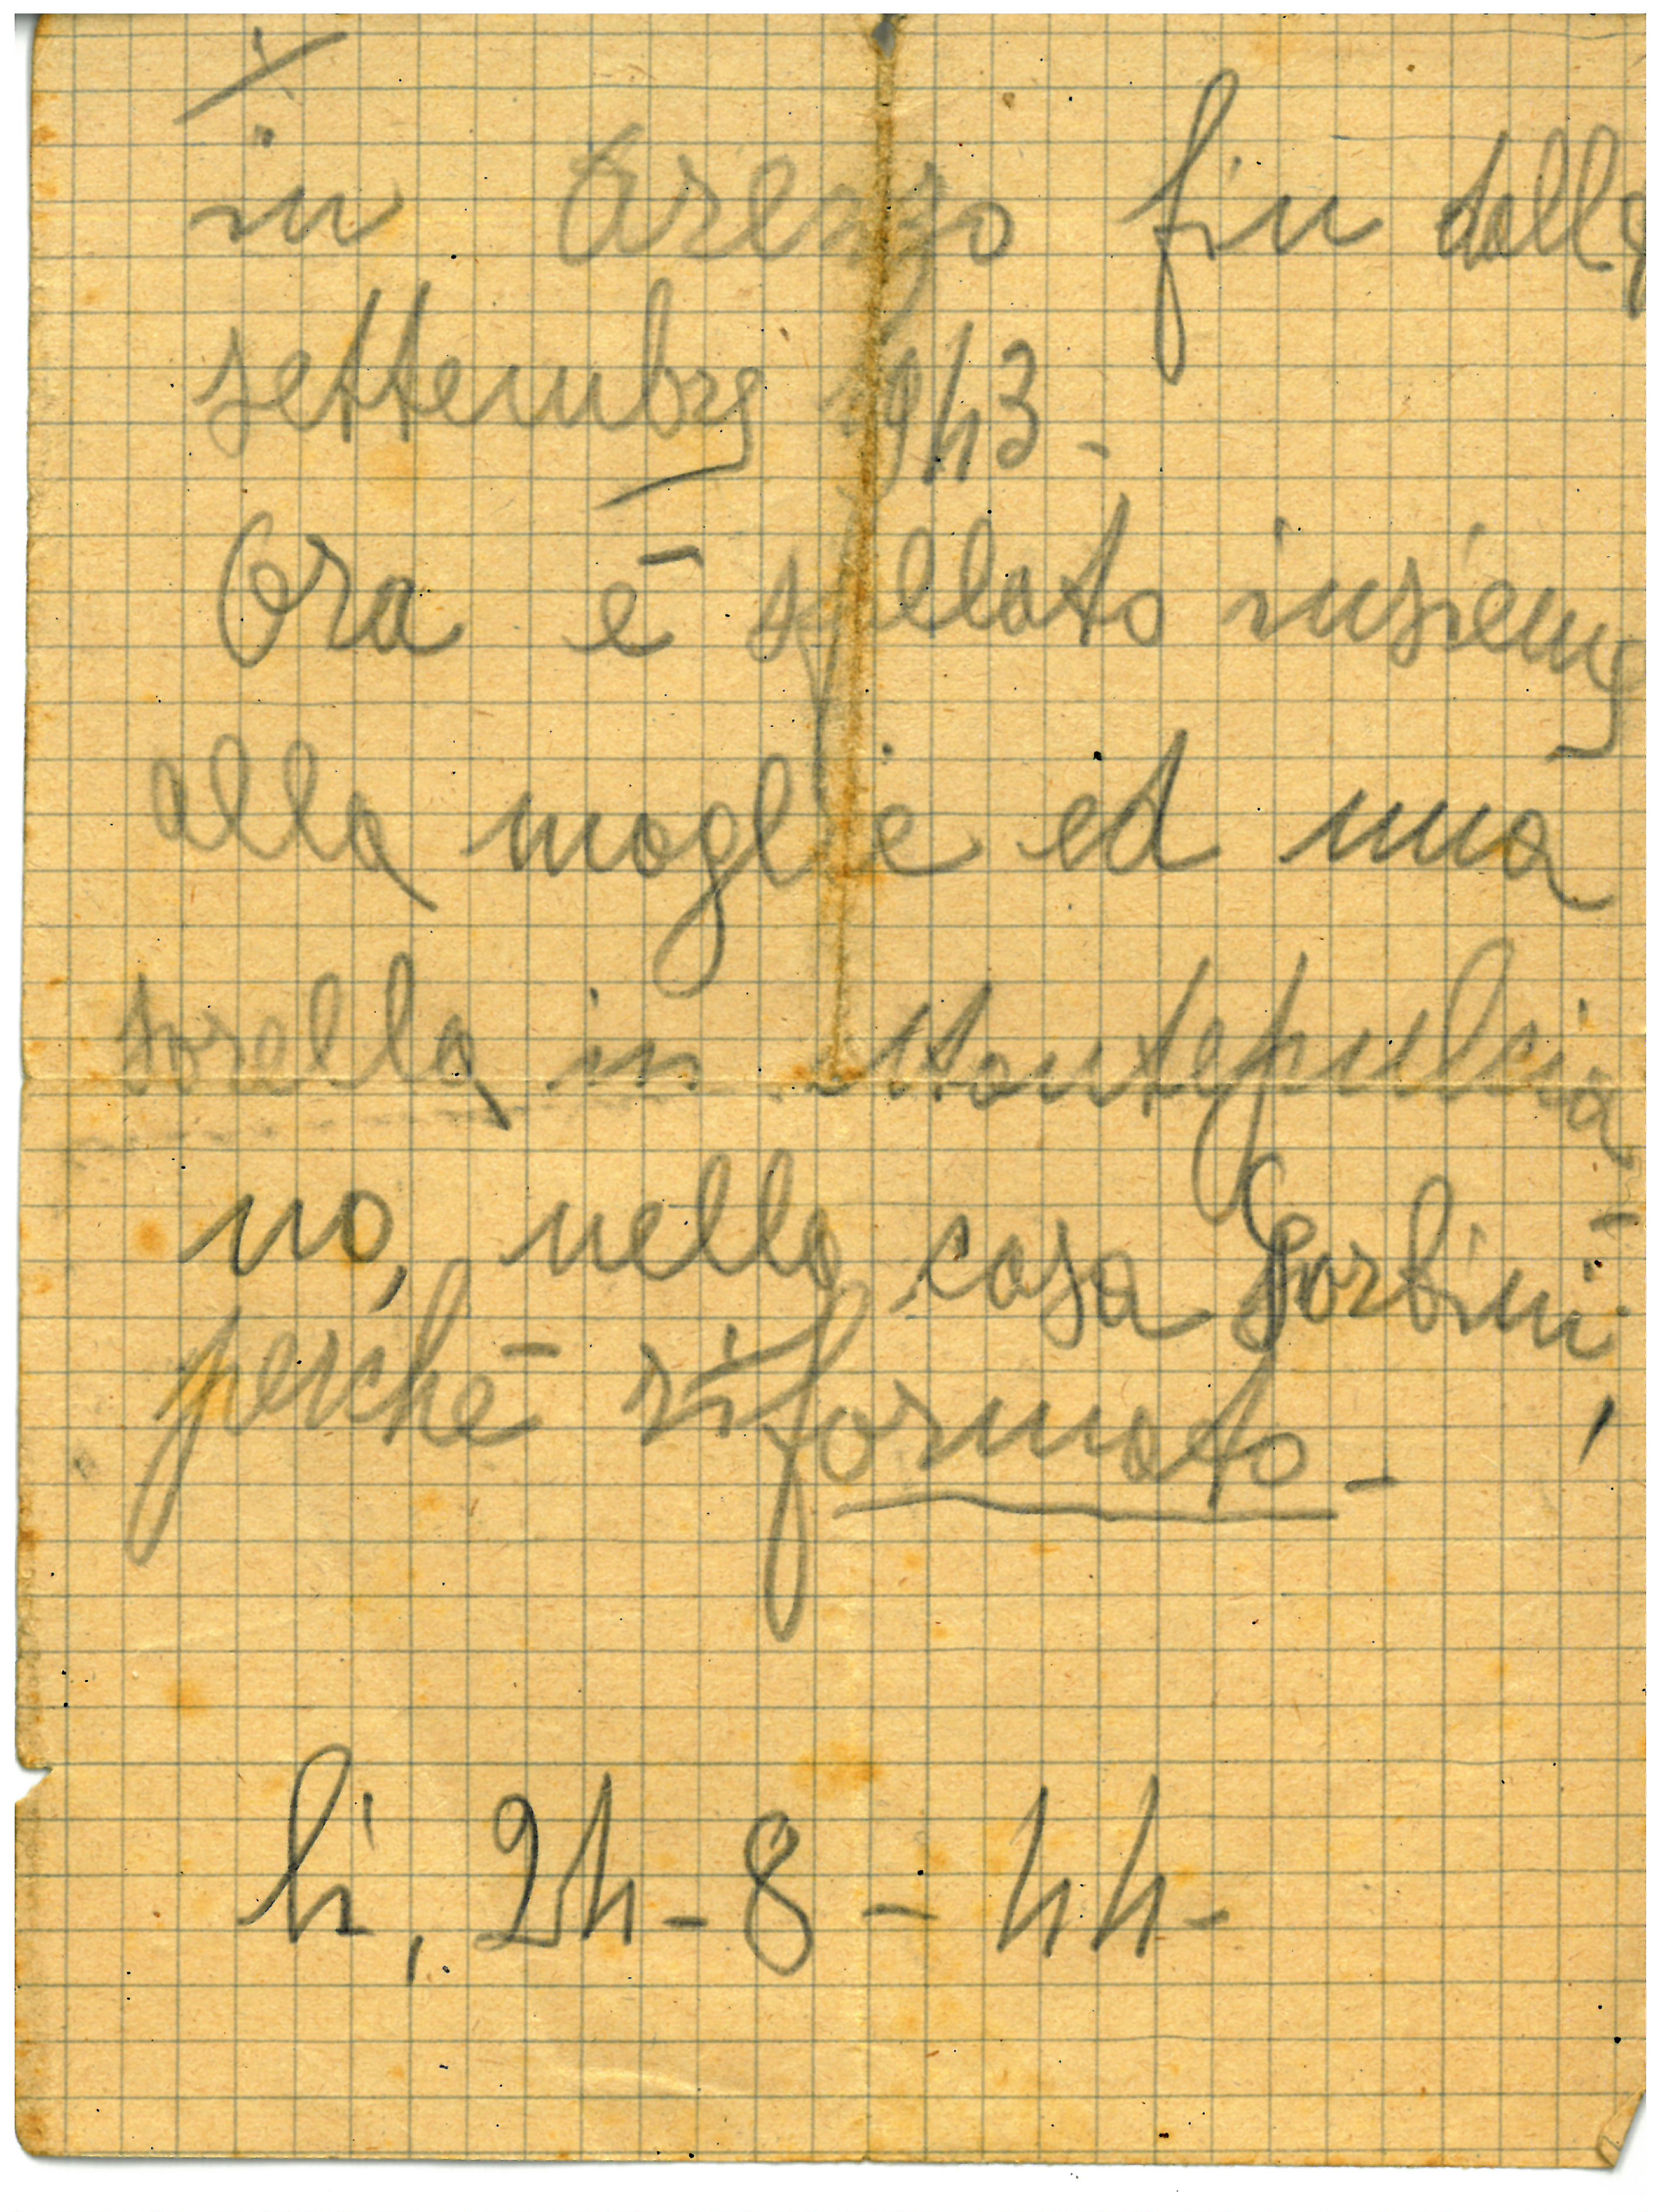 in Arezzo fin dall'8
settembre 1943 -
Ora è sfollato insieme
alla moglie ed una
sorella in Montepulcia-
no, nella casa Sorbini,
perché riformato -
lì, 24 - 8 - 44 -